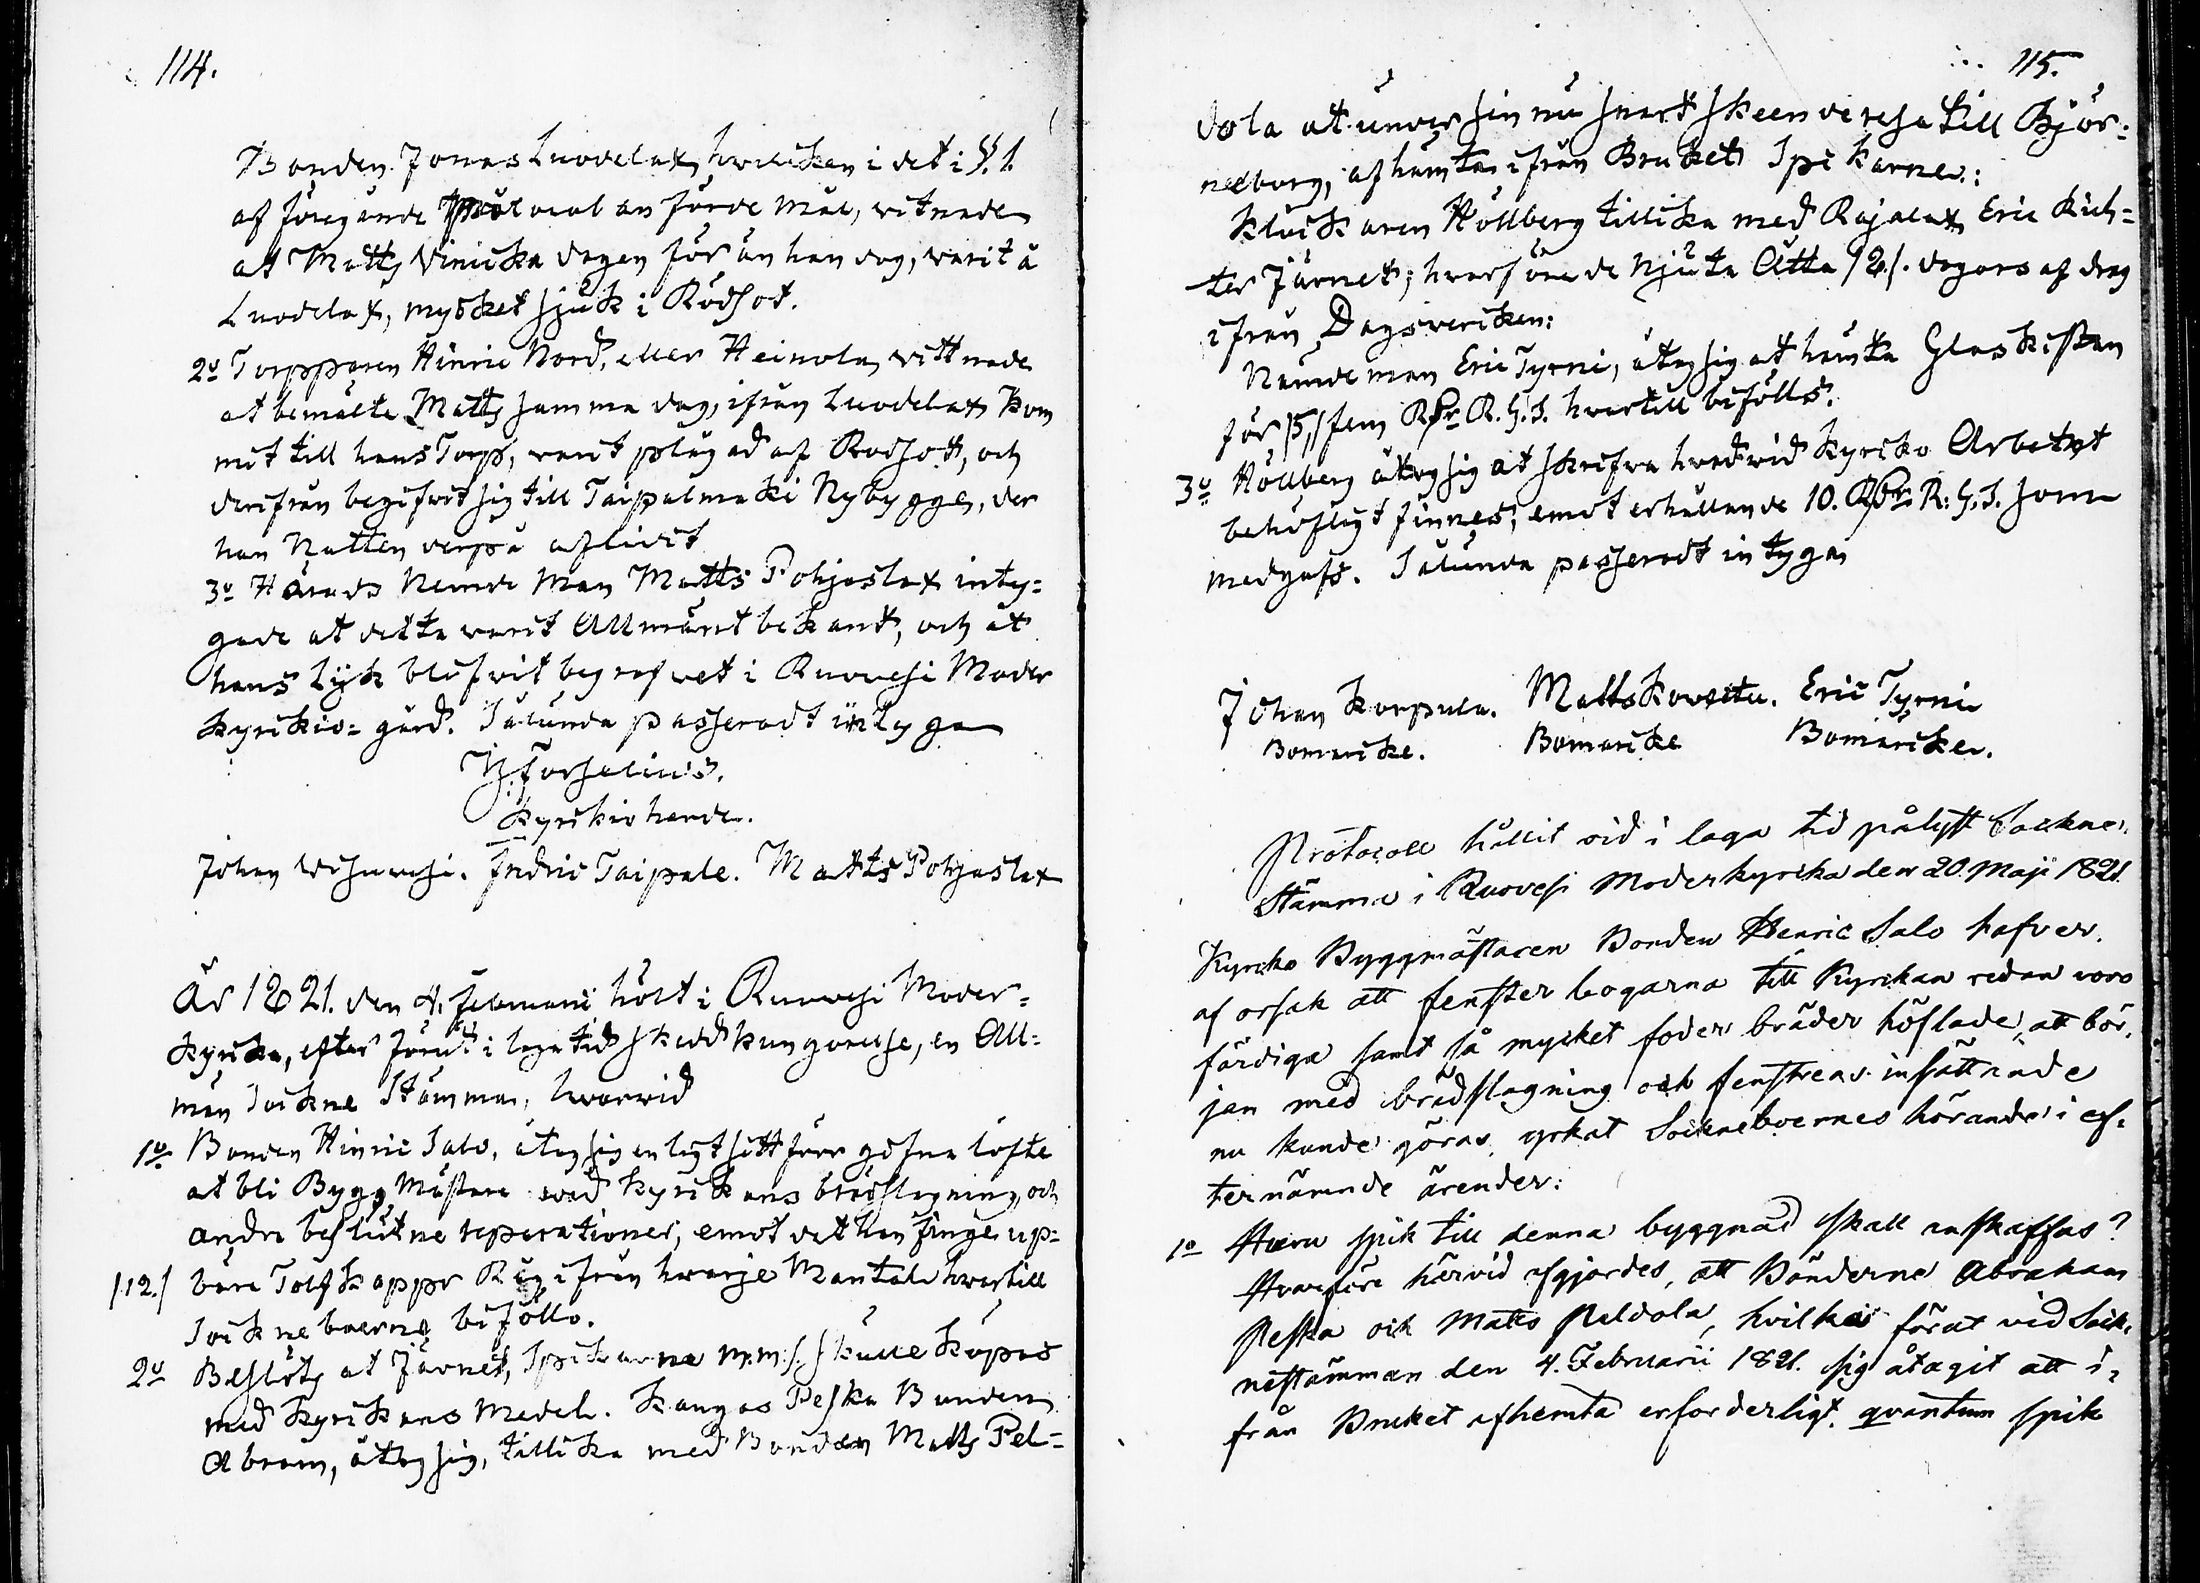 114.
Bonden Jonas Luodelax, hwilcken i det i §. 1.
af föregående Protocol anförde mål, witnade
at Matts Vinicka dagen för än han dog, warit å
Luodelax, mycket sjuk i Rödsot.
2o Torpparen Hinric Nord, eller Heinola, wittnade
at bemälte Matts samma dag, ifrån Luodelax kom
mit till hans Torp, warit plågad af Rödsot, och
derifrån begifwit sig till Taipalmaki Nybygge, der
han Natten derpå aflidit
3o Härads Nemde Man Matts Pohjaslax inty=
gade at detta warit Allmänt bekant, och at
hans Lijk blifwit begrafwet i Ruowesi Moder
kyrckio=gård. Sålunda passeradt intyga
Forselius.
Kyrckioherde.
Johan Wisuwesi. Indric Taipale. Matts Pohjaslax
År 1821. den 4. Februarii hölt i Ruowesi Moder=
kyrcka, efter förut i laga tid skedd kungörelse, en All=
män Sockne Stämma, hwarwid
1o Bonden Hinric Salo, åtog sig enligt sitt förr gifna löfte
at bli Bygg Mästare wid Kyrckans brädslagning, och
andra beslutne reparationer, emot det han finge up=
/12./ bära Tolf kappar Råg ifrån hwarje Mantal hwartill
Sockneboerne biföllo.
2o Beslöts at Järnet, Spickarne m:m: skulle köpas
med Kyrckans Medel. Kangas Peska Bonden
Abram, åtog sig, tillicka med Bonden Matts Pel=
115.
dola at under sin nu snart skeende resa till Björ=
neborg, afhämta ifrån Bruket Spickarne:
Klockaren Höllberg tillicka med Rajalax Eric
ter Järnet; hwarföre de njuta Åtta /8./ dagars afdrag
ifrån Dagswercken:
Nämdeman Eric Tyrni, åtog sig at hämta Glaskistan
för /5,/ fem Rbr R. G. S. hwartill biföllo.
3o Höllberg åtog sig at skrifwa hwad wid Kyrcko Arbetet
behöfligt finnes, emot erhållande 10. Rbr R: G. S. som
medgafs. Sålunda passeradt intyga
Johan Korpula. Matts Kowettu. Eric Tyrni
Bomärcke. Bomärcke Bomärcke.
Protocoll hållit vid i laga tid pålyst Sockne=
stämma i Ruovesi Moderkyrcka den 20. Maji 1821.
Kyrcko Byggmästaren Bonden Henric Salo hafver.
af orsak att fenster bogarna till Kyrckan redan voro
färdiga samt så mycket foder bräder höflade, att bör=
jan med brädslagning och fenstrens insättande
nu kunde göras, yrkat Sockneboernes hörande i ef=
ternämnde ärender:
1o Huru spik till denna byggnad skall anskaffas?
Hvarföre härvid afgjordes, att Bönderna Abraham
Peska och Matts Peldola, hvilka förut vid Sock=
nestämman den 4. Februarii 1821. sig åtagit att i=
från Bruket afhemta erforderligt. qvantum spik